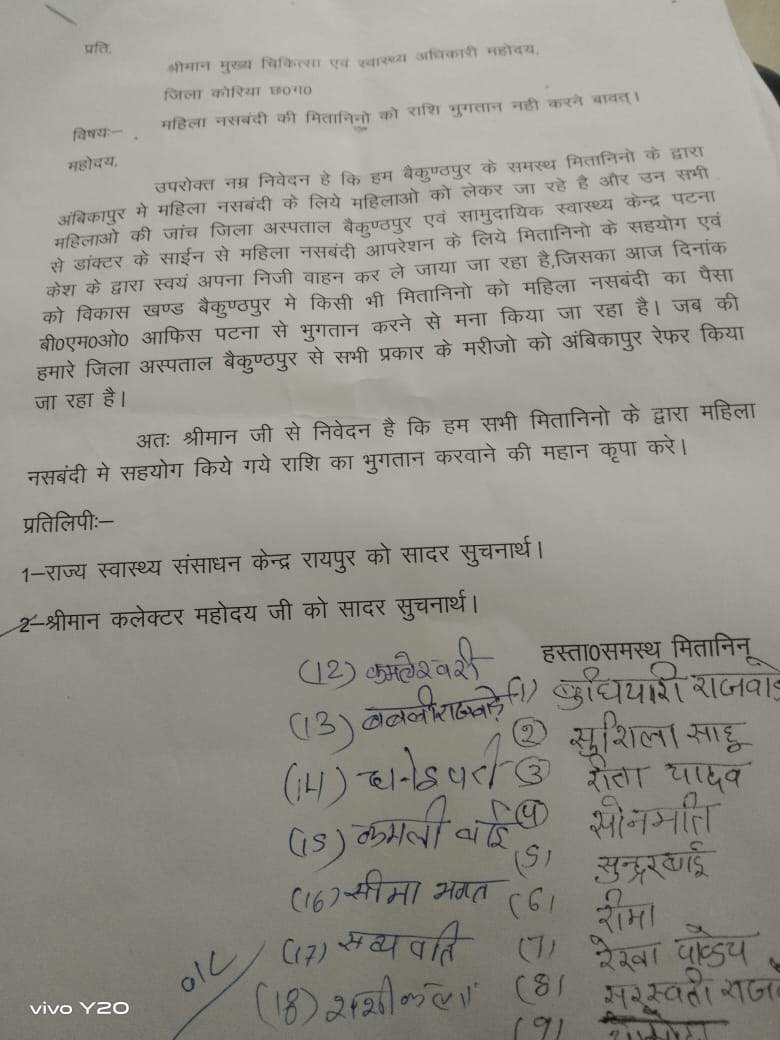 प्रति,
श्रीमान मुख्य चिकित्सा एवं स्वास्थ्य अधिकारी महोदय,
जिला कोरिया छ०ग०
विषयः– महिला नसबंदी की मितानिनो को राशि भुगतान नही करने बावत्।
महोदय,
उपरोक्त नम्र निवेदन हे कि हम बैकुण्ठपुर के समस्थ मितानिनो के द्वारा
अंबिकापुर मे महिला नसबंदी के लिये महिलाओ को लेकर जा रहे है और उन सभी
महिलाओ की जांच जिला अस्पताल बैकुण्ठपुर एवं सामुदायिक स्वास्थ्य केन्द्र पटना
से डांक्टर के साईन से महिला नसबंदी आपरेशन के लिये मितानिनो के सहयोग एवं
केश के द्वारा स्वयं अपना निजी वाहन कर ले जाया जा रहा है,जिसका आज दिनांक
को विकास खण्ड बैकुण्ठपुर मे किसी भी मितानिनो को महिला नसबंदी का पैसा
बी०एम०ओ० आफिस पटना से भुगतान करने से मना किया जा रहा है। जब की
हमारे जिला अस्पताल बैकुण्ठपुर से सभी प्रकार के मरीजो को अंबिकापुर रेफर किया
जा रहा है।
अतः श्रीमान जी से निवेदन है कि हम सभी मितानिनो के द्वारा महिला
नसबंदी मे सहयोग किये गये राशि का भुगतान करवाने की महान कृपा करे।
प्रतिलिपीः–
1–राज्य स्वास्थ्य संसाधन केन्द्र रायपुर को सादर सुचनार्थ।
2–श्रीमान कलेक्टर महोदय जी को सादर सुचनार्थ।
हस्ता०समस्थ मितानिन्
(12) कमलेश्वरी
(1) बुधियारी राजवाड़े
(13) बबली राजवाड़े
(2) सुशिला साहू
(14)
(3) रीता यादव
(15) कमली बाई
(4) सोनमति
(5) सुन्दरबाई
(16) सीमा भगत
(6) रीमा
(17) सत्यवति
(7) रेखा पाण्डेय
(18) शशीकला
(8) सरस्वती
(9)
vivo Y20